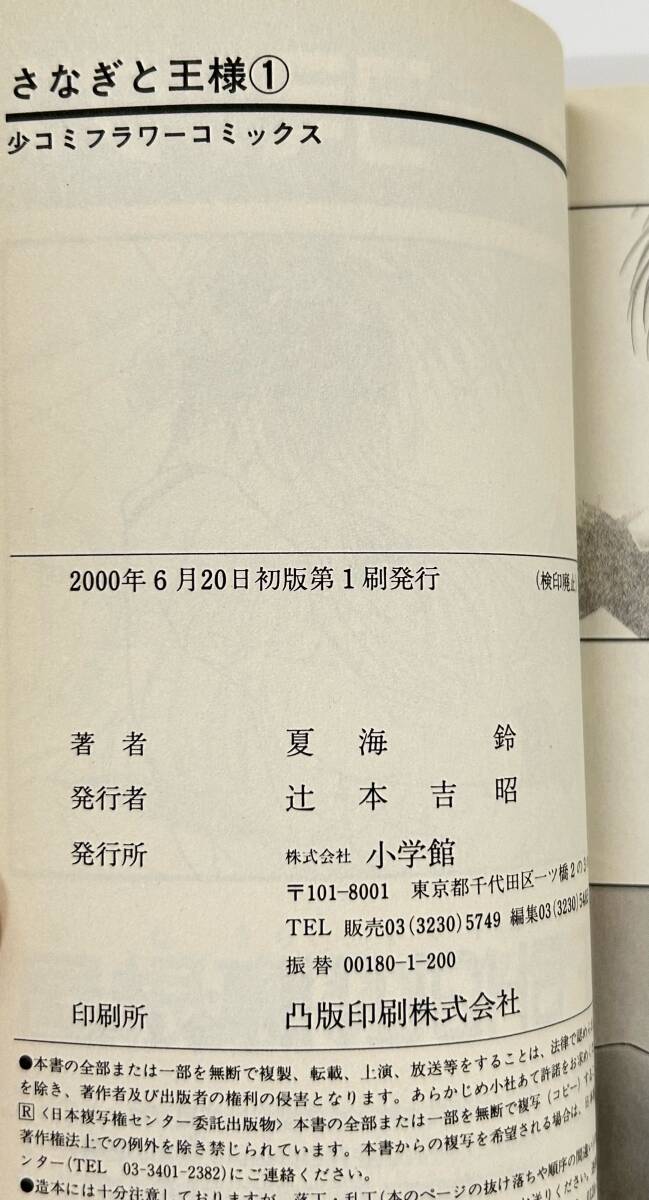 さなぎと王様①
少コミフラワーコミックス
2000年6月20日初版第1刷発行 (検印廃止
著者 夏海 鈴
発行者 辻本吉昭
発行所 株式会社 小学館
〒101-8001 東京都千代田区一ツ橋2の3
TEL 販売03(3230)5749 編集03(3230)
振替 00180-1-200
印刷所 凸版印刷株式会社
●本書の全部または一部を無断で複製、転載、上演、放送等をすることは、法律で認め
を除き、著作者及び出版者の権利の侵害となります。あらかじめ小社あて許諾をお求め
R〈日本複写権センター委託出版物〉本書の全部または一部を無断で複写(コピー)する
著作権法上での例外を除き禁じられています。本書からの複写を希望される場合は、日本
ンター(TEL 03-3401-2382)にご連絡ください。
●造本には十分注意しておりますが、落丁・乱丁(本のページの抜け落ちや順序の間違い